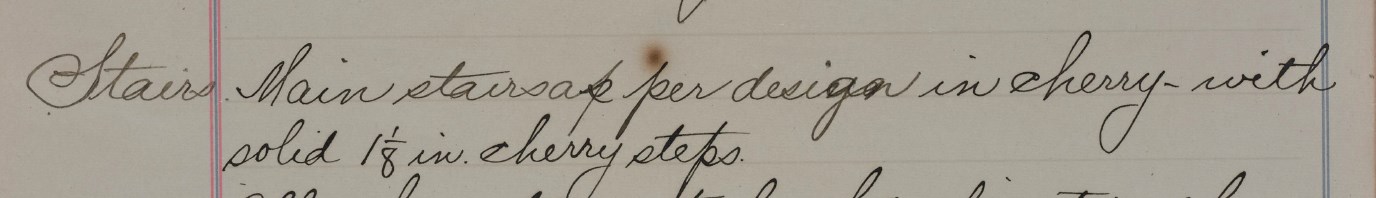 Stairs. Main stairs as per design in cherry - with
solid 1 1/8 in. cherry steps.